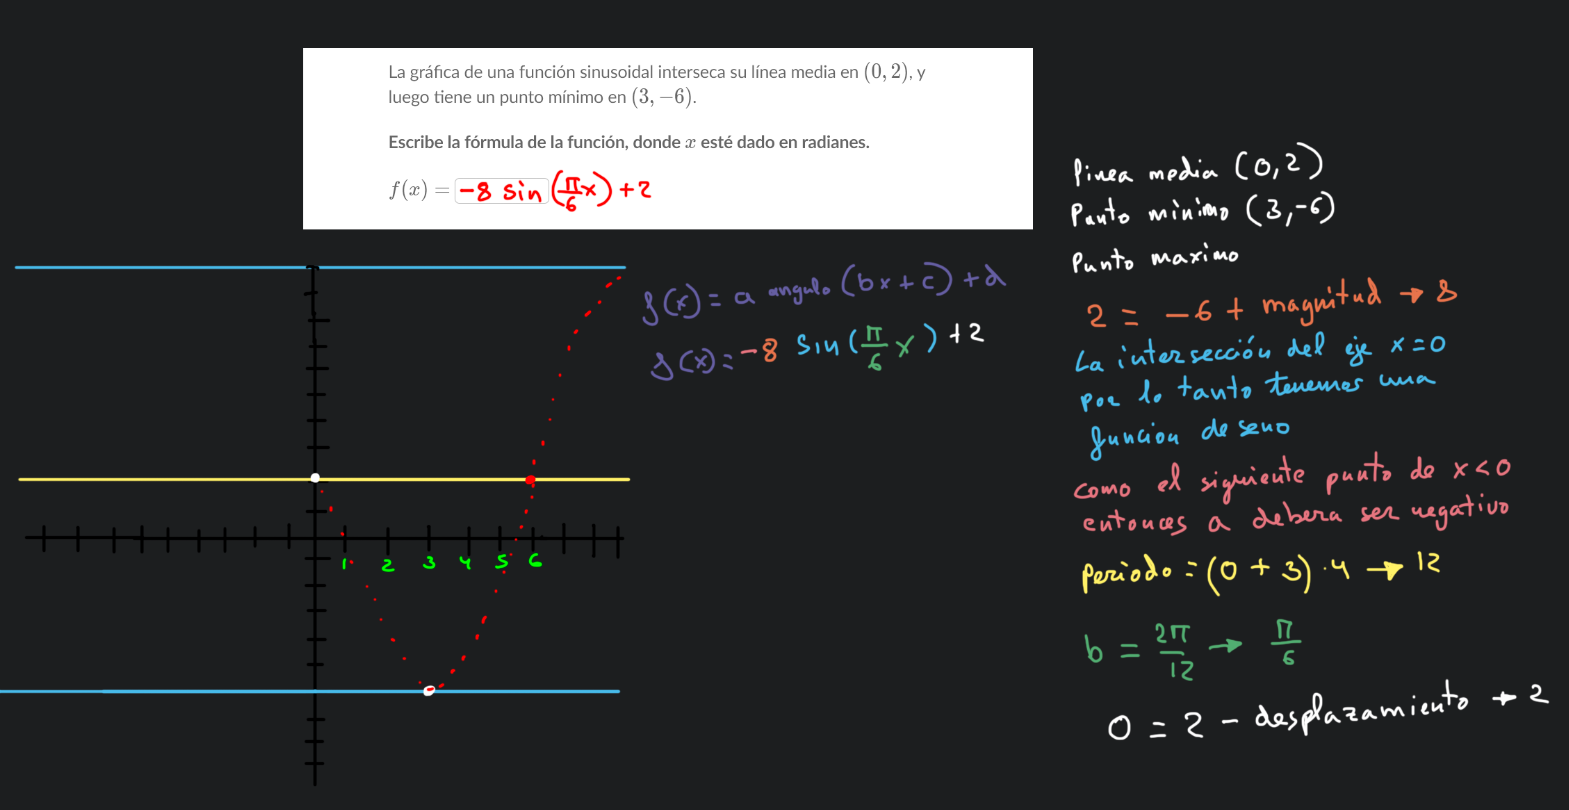 La gráfica de una función sinusoidal interseca su línea media en (0, 2), y
luego tiene un punto mínimo en (3, −6).
Escribe la fórmula de la función, donde x esté dado en radianes.
f(x) = -8 sin(π/6 x) + 2
f(x) = a angulo (bx + c) + d
f(x) = -8 sin(π/6 x) + 2
1 2 3 4 5 6
linea media (0,2)
Punto minimo (3,-6)
Punto maximo
2 = -6 + magnitud → 8
La intersección del eje x = 0
por lo tanto tenemos una
funcion de seno
como el siguiente punto de x < 0
entonces a debera ser negativo
Periodo = (0 + 3) · 4 → 12
b = 2π/12 → π/6
0 = 2 - desplazamiento → 2